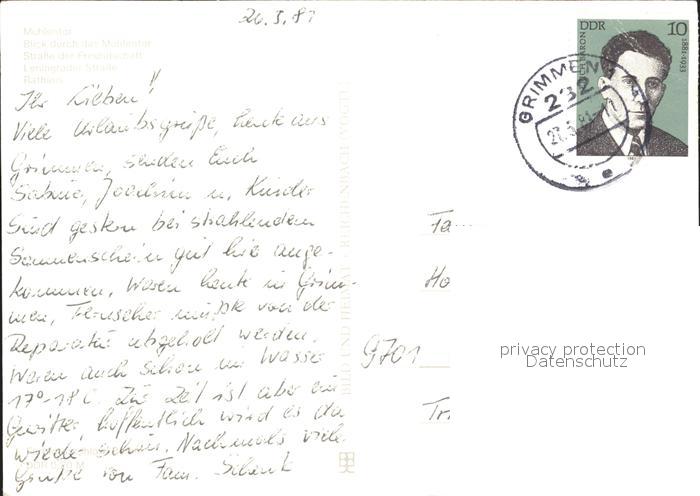 26.5.81
Mühlentor
Blick durch das Mühlentor
Straße der Freundschaft
Leningrader Straße
Rathaus
Ihr Lieben!!
Viele Urlaubsgrüße, heute aus
Grimmen, senden Euch
Sabine, Joachim u. Kinder
Sind gestern bei strahlendem
Sonnenschein gut hie ange-
kommen. Waren heute in Grim-
men, Fernseher mußte von der
Reparatur abgeholt werden.
Waren auch schon im Wasser
17°-18°C. Zur Zeit ist aber ein
Gewitter hoffentlich wird es da
wieder schön. Nachmals viele
Grüße von Fam. Schenk
BILD UND HEIMAT · REICHENBACH (VOGTL)
DDR 10
ERICH BARON 1881-1933
GRIMMEN
232
27.5.81
Fa
Ho
9701
Tr
privacy protection
Datenschutz